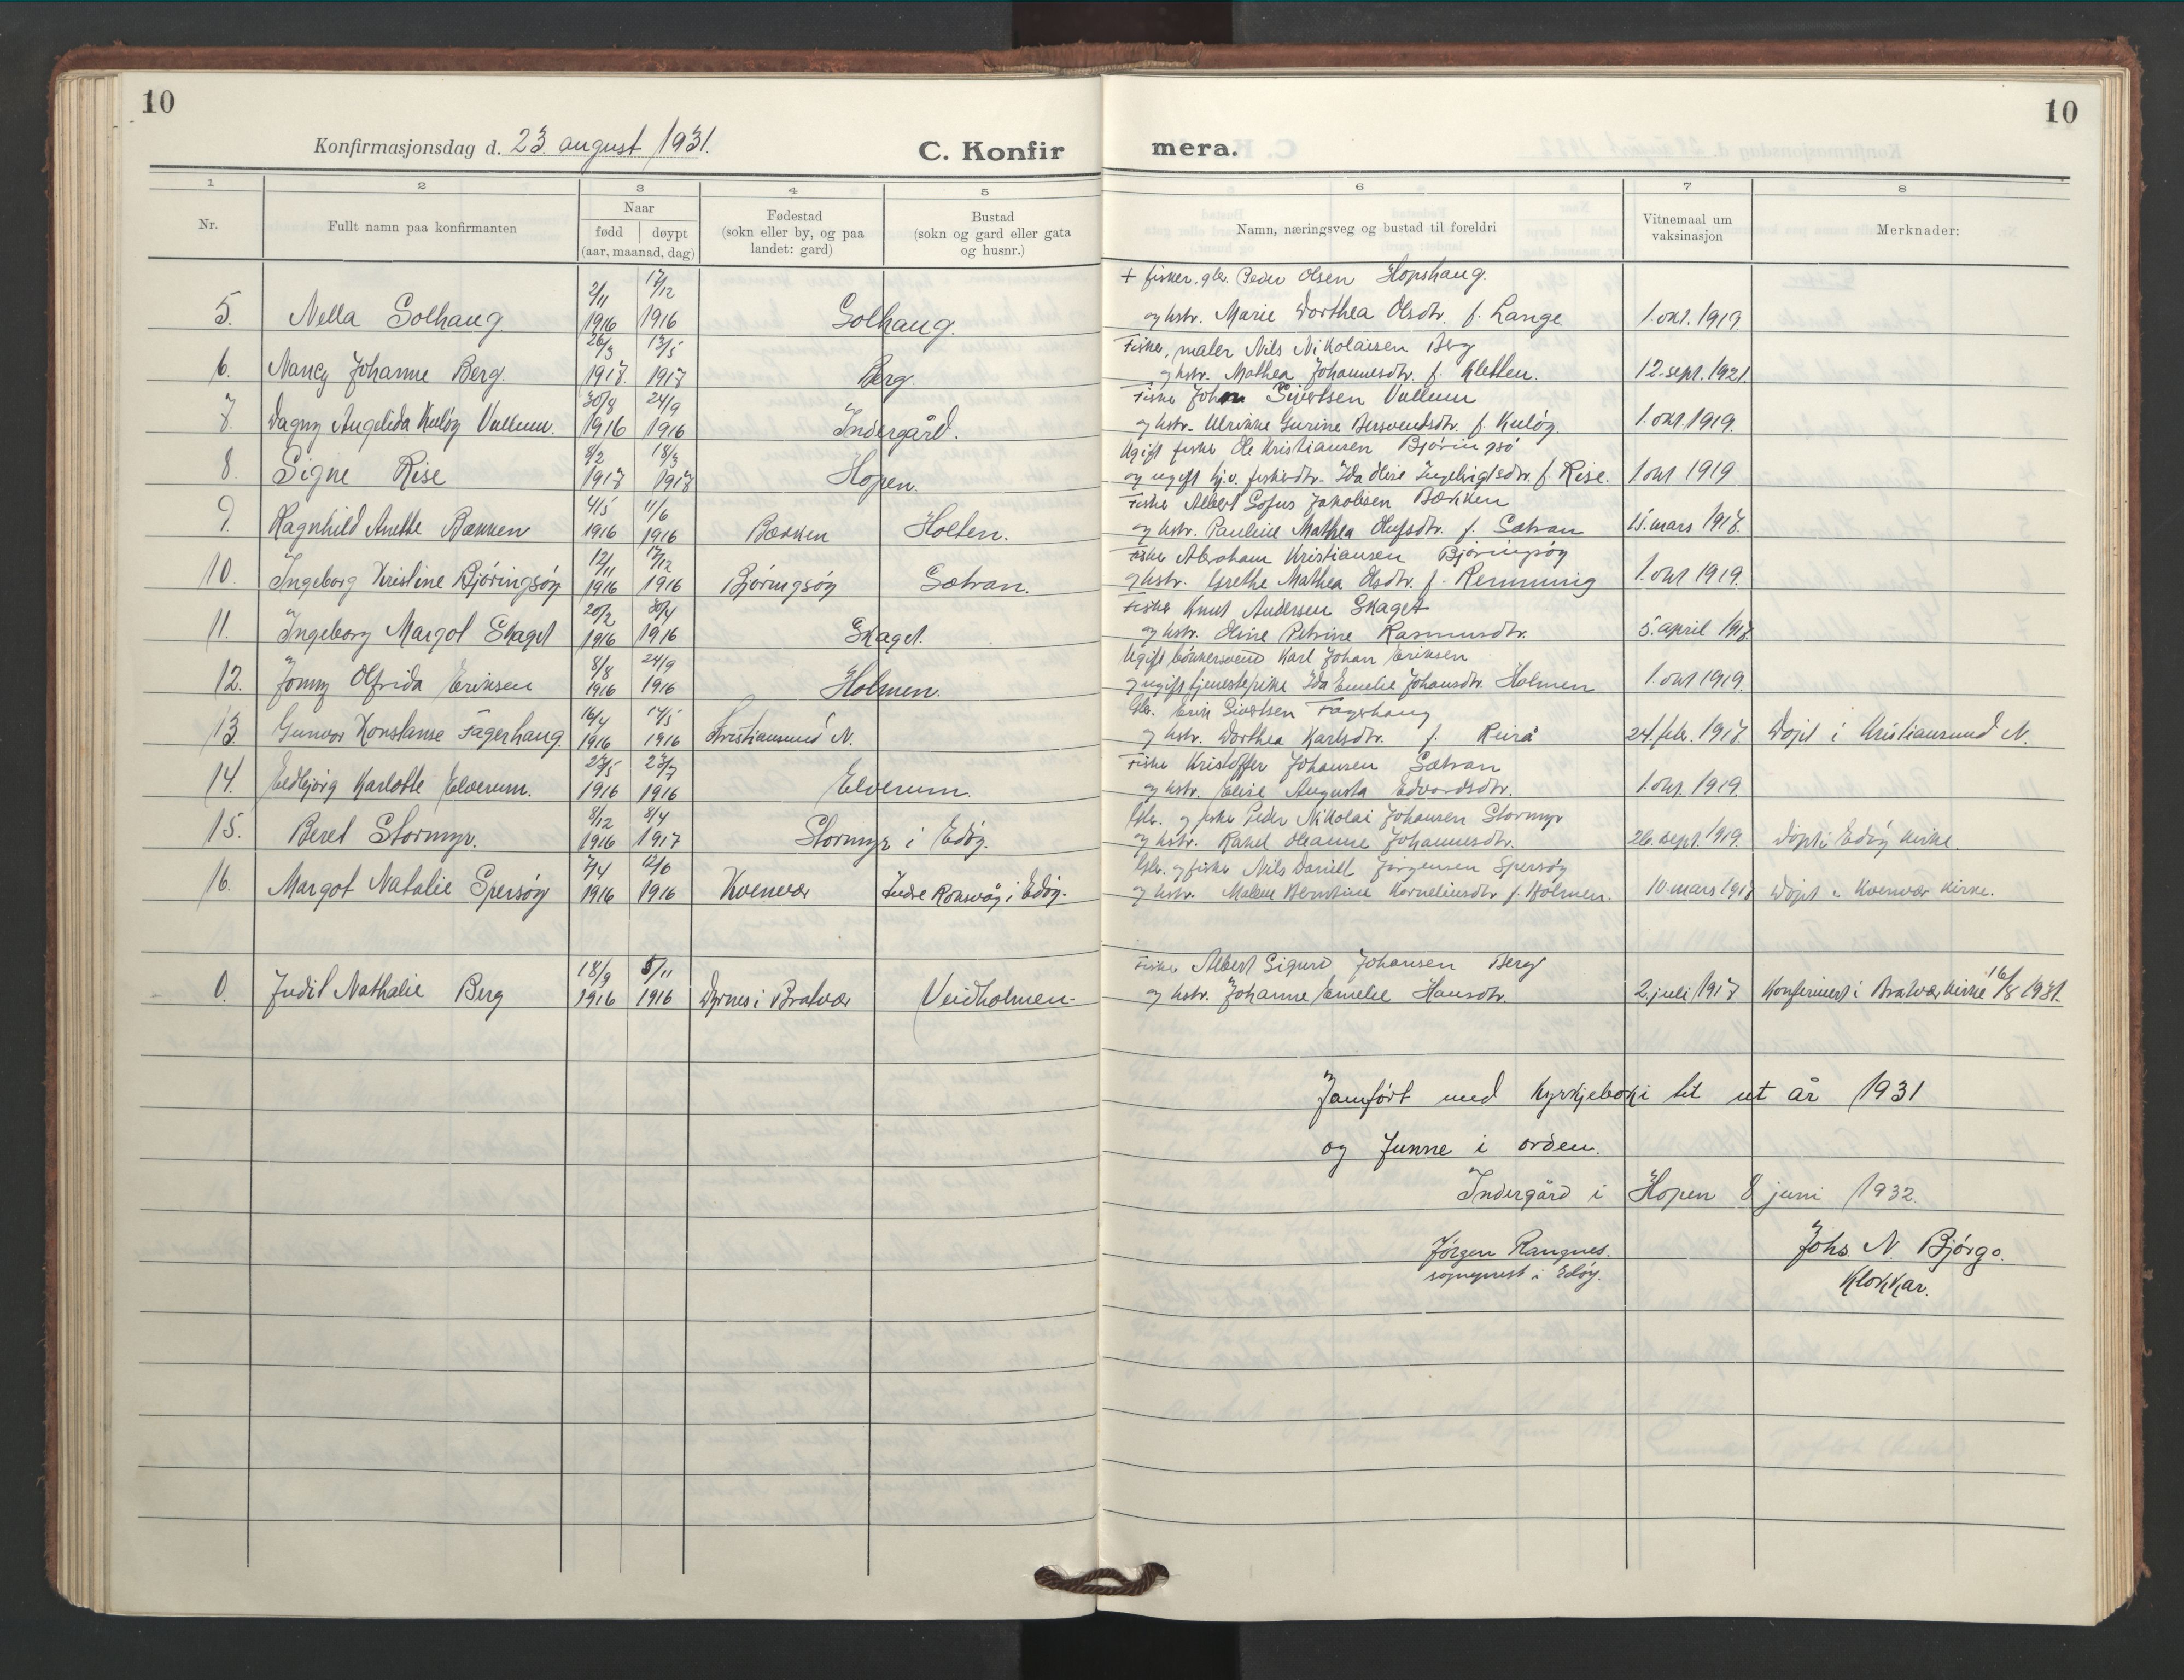 10
10
Konfirmasjonsdag d. 23. august 1931.
C. Konfir
mera.
1 2 3 4 5 6 7 8
Nr.
Fullt namn paa konfirmanten
Naar
fødd døypt
(aar, maanad, dag)
Fødestad
(sokn eller by, og paa
landet: gard)
Bustad
(sokn og gard eller gata
og husnr.)
Namn, næringsveg og bustad til foreldri
Vitnemaal um
vaksinasjon
Merknader:
2/11 17/12 + fisker. gbr. Peder Olsen Hopshaug.
5. Nella Solhaug 1916 1916 Solhaug. og hstr. Marie Dorthea Olsdtr. f. Lange 1. okt. 1919
26/3 13/5 Fisker, maler Nils Nikolaisen Berg
6. Nancy Johanne Berg. 1917 1917 Berg. og hstr. Mathea Johannesdtr. f. Kletten. 12. sept. 1921.
30/8 24/9 Fisker Johan Sivertsen Vullum
7. Dagny Angelida Kuløy Vullum. 1916 1916 Indergård. og hstr. Ulrikke Gurine Bersvendsdtr. f. Kuløy. 1. okt. 1919.
8/2 18/3 Ugift fisker Ole Kristiansen Bjøringsø
8 Signe Rise 1917 1917 Hopen. og ugift hj.v. fiskerdtr. Ida Olise Ingebrigtsdtr. f. Rise. 1. okt 1919
4/5 11/6 Fisker Albert Sofus Jakobsen Bækken
9. Ragnhild Anette Bækken 1916 1916 Bækken Holten. og hstr. Pauline Mathea Olufsdtr. f. Sætran 15. mars 1917.
12/11 17/12 Fisker Abraham Kristiansen Bjøringsøy
10. Ingeborg Kristine Bjøringsøy 1916 1916 Bjøringsøy Sætran. og hstr. Grethe Mathea Olsdtr. f. Remming 1. okt 1919.
20/2 30/4 Fisker Knut Andersen Skaget
11. Ingeborg Margot Skaget 1916 1916 Skaget. og hstr. Oline Petrine Rasmusdtr. 5. april 1917
8/8 24/9 Ugift bøkkersvend Karl Johan Eriksen
12. Jonny Olfrida Eriksen 1916 1916 Holmen. og ugift tjenestepike Ida Emelie Johansdtr. Holmen 1. okt 1919.
16/4 14/5 Gbr. Erik Sivertsen Fagerhaug
13. Gunvor Konstanse Fagerhaug. 1916 1916 Kristiansund N. og hstr. Dorthea Karlsdtr. f. Reirå 24. febr. 1917. Døpt i Kristiansund N.
27/5 23/7 Fisker Kristoffer Johansen Sætran
14. Eldbjørg Karlotte Elverum. 1916 1916 Elverum. og hstr. Elise Augusta Edvardsdtr. 1. okt. 1919.
8/12 8/4 Gbr. og fisker Peder Nikolai Johansen Stormyr
15. Beret Stormyr. 1916 1917 Stormyr i Edøy. og hstr. Rakel Oleanne Johannesdtr. 26. sept. 1919. Døpt i Edøy kirke.
7/4 12/6 Gbr. og fisker Nils Daniel Jørgensen Spersøy
16. Margot Natalie Spersøy 1916 1916 Kvenvær Indre Roksvåg i Edøy. og hstr. Malene Berntine Korneliusdtr f. Holmen. 10. mars 1917 Døpt i Kvenvær kirke.
18/9 5/11 Fisker Albert Sigurd Johansen Berg
0. Judit Nathalie Berg 1916 1916 Dyrnes i Bratvær Veidholmen- og hstr. Johanne Emelie Hansdtr. 2. juli 1917 Konfirmert i Bratvær kirke 16/8 1931.
Jamført med kyrkjeboki til ut år 1931
og funne i orden.
Indergård i Hopen 8 juni 1932.
Jørgen Rangnes. Johs. N. Bjørgo.
sogneprest i Edøy. Klokkar.